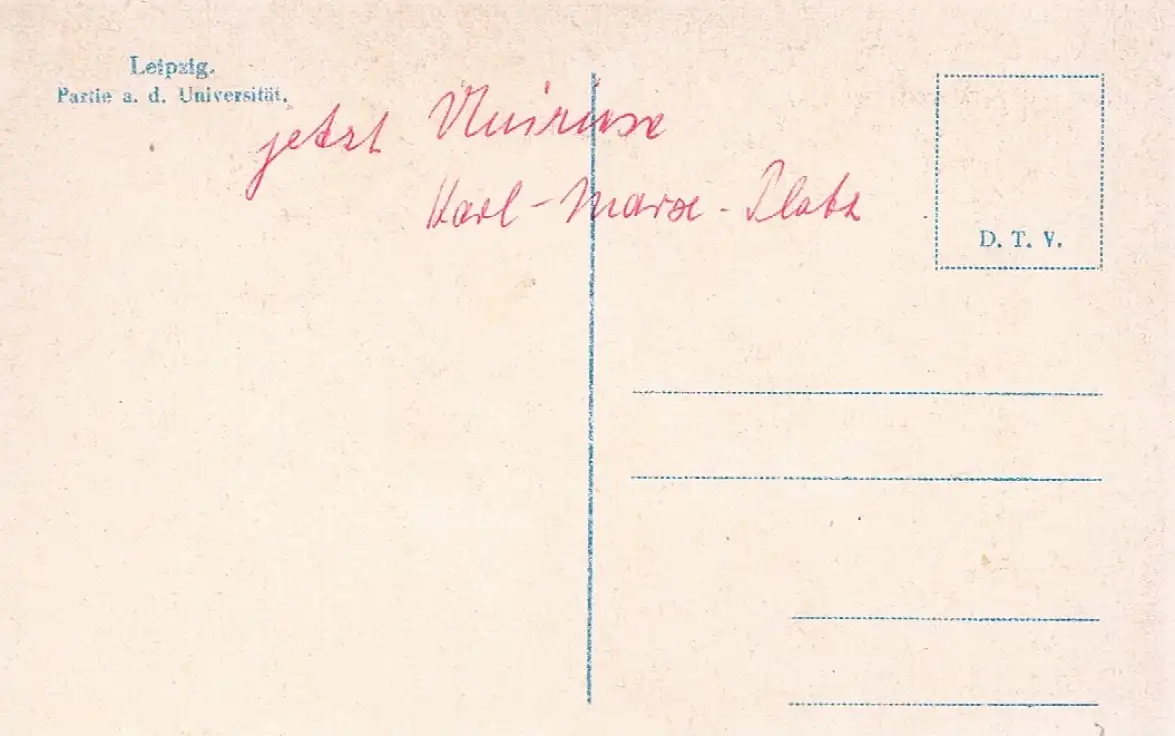 Leipzig.
Partie a. d. Universität.
jetzt
Karl-Marx-Platz
D. T. V.